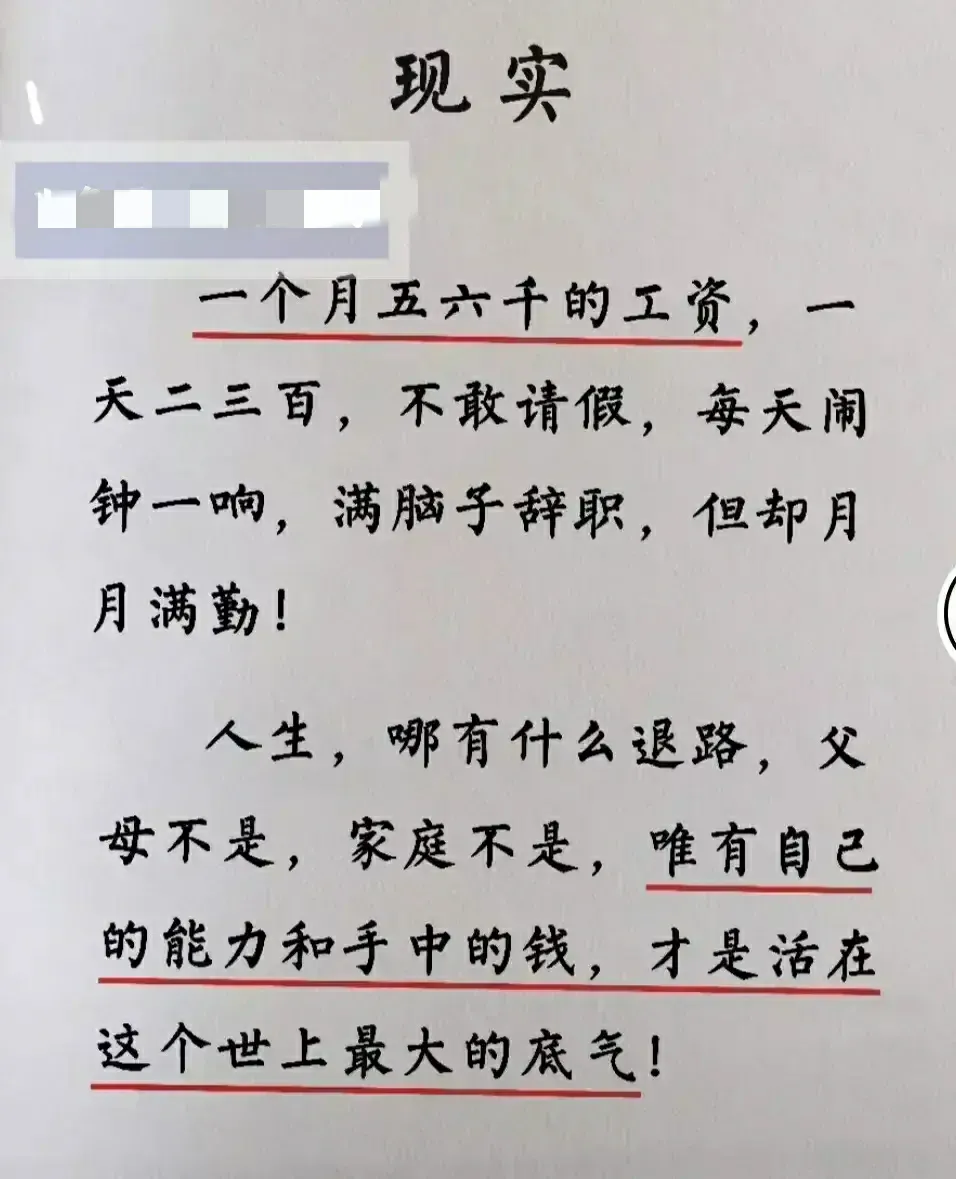 现实
一个月五六千的工资，一
天二三百，不敢请假，每天闹
钟一响，满脑子辞职，但却月
月满勤！
人生，哪有什么退路，父
母不是，家庭不是，唯有自己
的能力和手中的钱，才是活在
这个世上最大的底气！